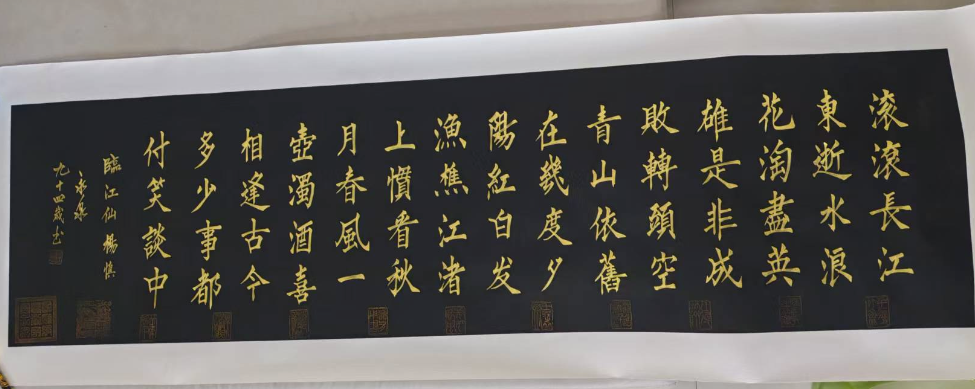 滚滾長江
東逝水浪
花淘盡英
雄是非成
敗轉頭空
青山依舊
在幾度夕
陽紅白发
漁樵江渚
上慣看秋
月春風一
壺濁酒喜
相逢古今
多少事都
付笑談中
臨江仙 楊慎
九十四歲书